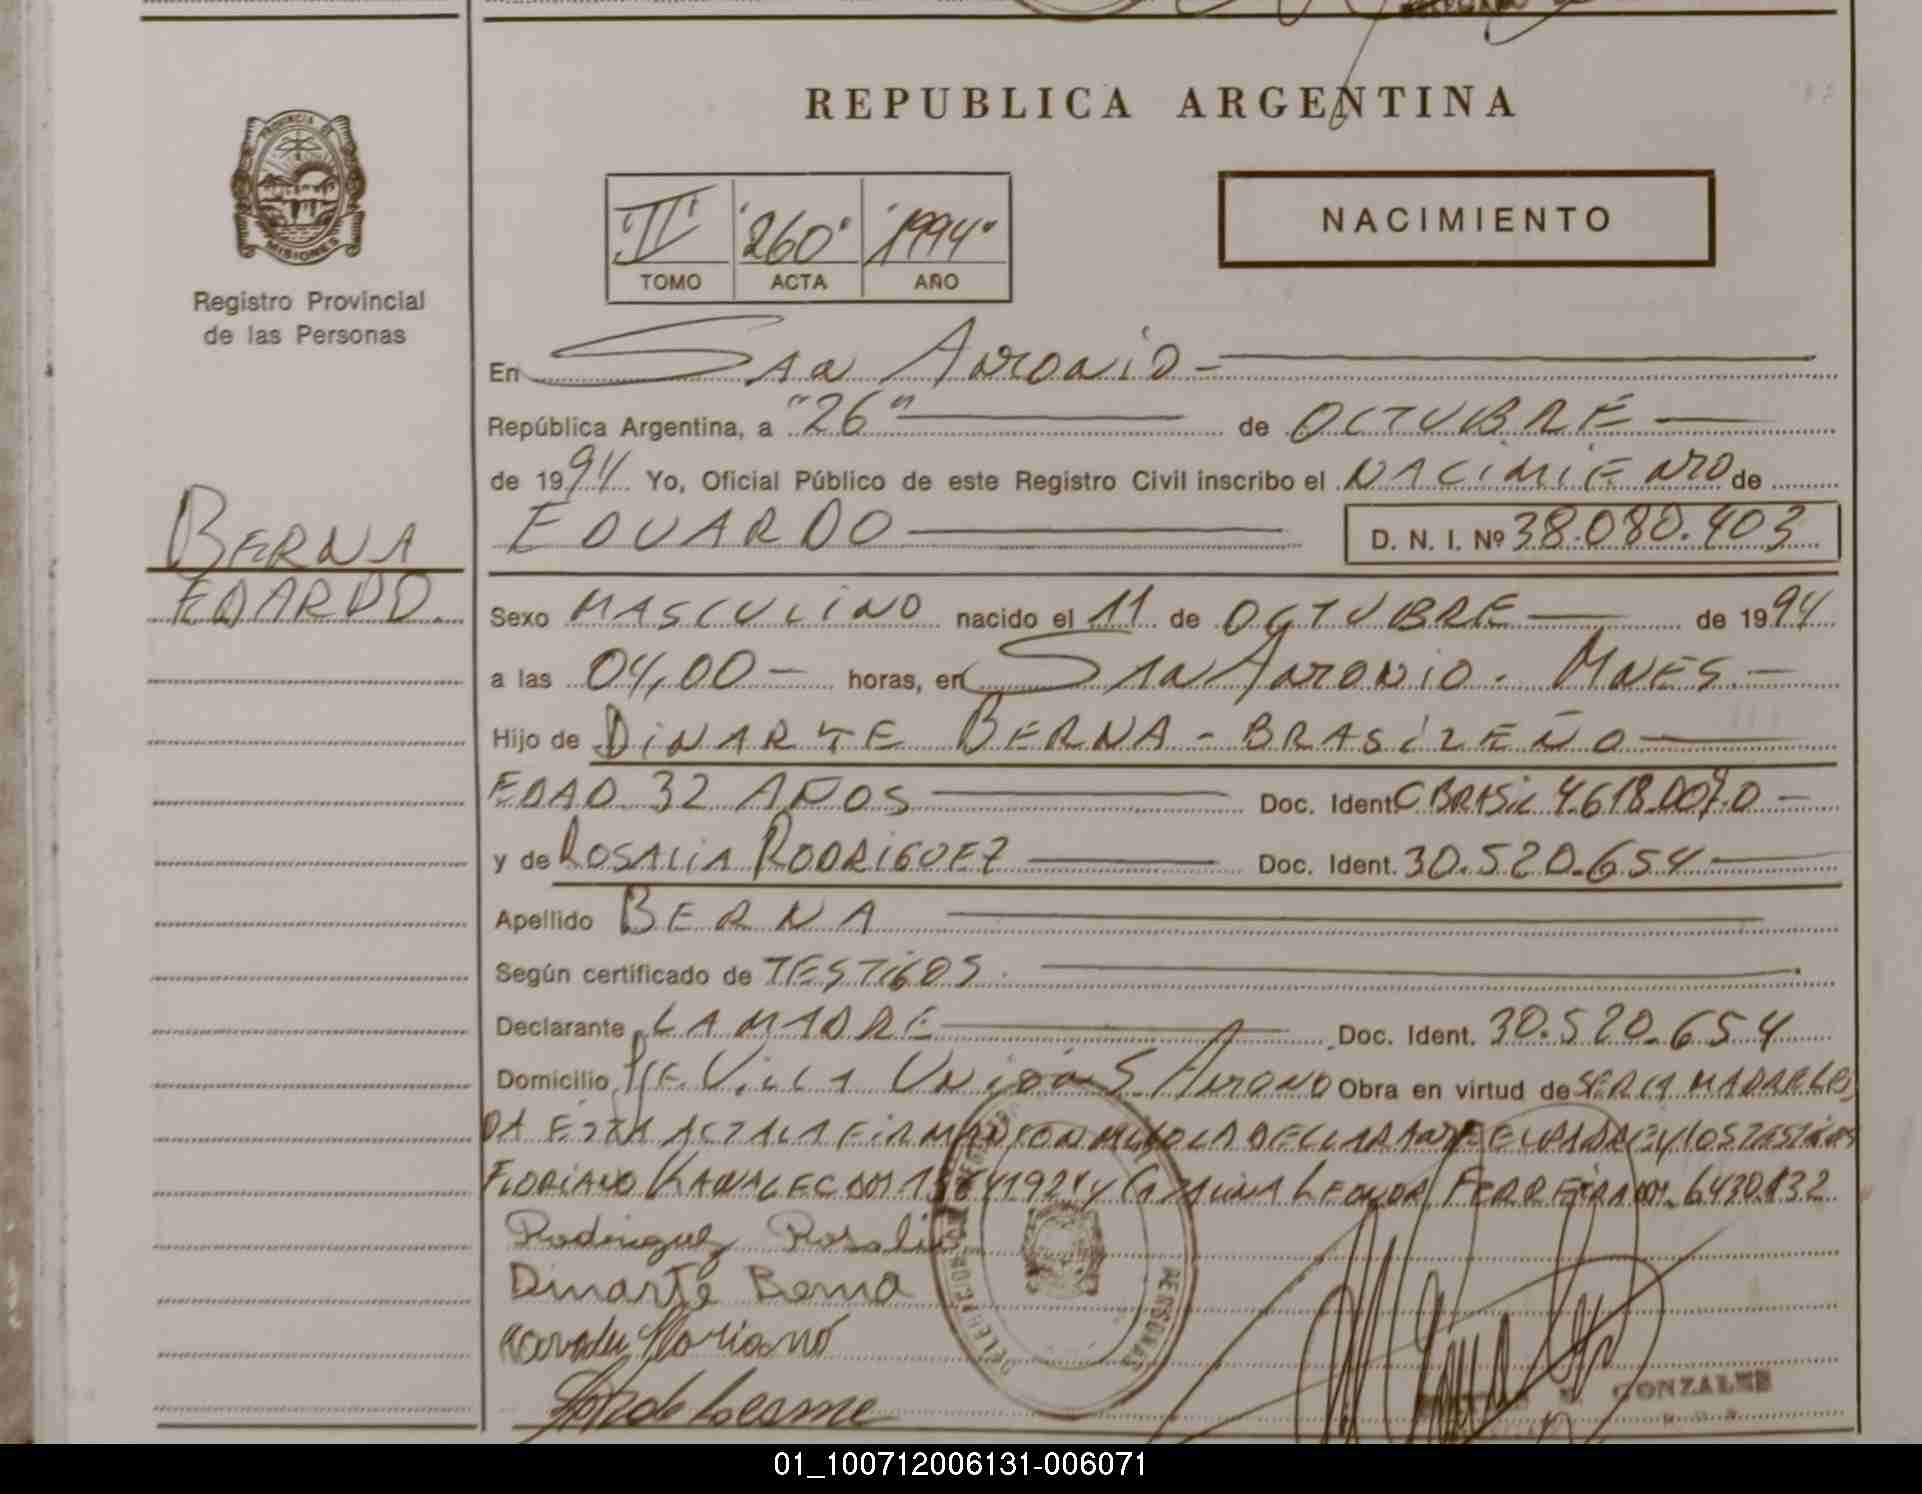 REPUBLICA ARGENTINA
PROVINCIA DE
MISIONES
Registro Provincial
de las Personas
"260" "1994"
TOMO ACTA AÑO
NACIMIENTO
En San Antonio
República Argentina, a "26" de OCTUBRE
de 1994 Yo, Oficial Público de este Registro Civil inscribo el NACIMIENTO de
EDUARDO D. N. I. Nº 38.080.403
BERNA
EDARDO.
Sexo MASCULINO nacido el 11 de OCTUBRE de 1994
a las 04,00 horas, en SAN ANTONIO - MNES.
Hijo de DINARTE BERNA - BRASILEÑO
EDAD 32 AÑOS Doc. Ident. C BRASIL
y de ROSALIA RODRIGUEZ Doc. Ident. 30.520.654
Apellido BERNA
Según certificado de TESTIGOS.
Declarante LA MADRE Doc. Ident. 30.520.654
Domicilio VILLA UNION S. ANTONIO Obra en virtud de
DA ESTA ACTA LA FIRMAN CONMIGO LA DECLARANTE EL PADRE Y LOS TESTIGOS
FLORIANO Y LEONOR FERREIRA
Rodriguez Rosalia
Dinarte Berna
PERSONAS
GONZALES
01_100712006131-006071